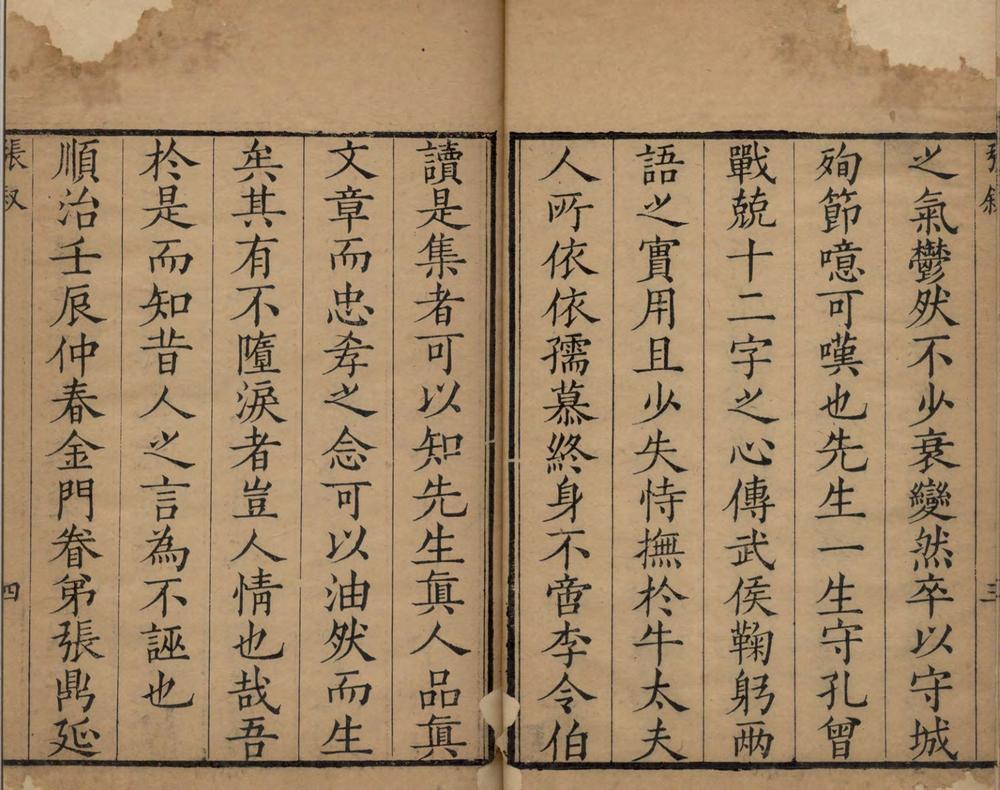 張叙
三
之氣鬱然不少衰變然卒以守城
殉節噫可嘆也先生一生守孔曾
戰兢十二字之心傳武侯鞠躬兩
語之實用且少失恃撫於牛太夫
人所依依孺慕終身不啻李令伯
讀是集者可以知先生眞人品眞
文章而忠孝之念可以油然而生
矣其有不墮淚者豈人情也哉吾
於是而知昔人之言為不誣也
順治壬辰仲春金門眷弟張鼎延
張叙
四